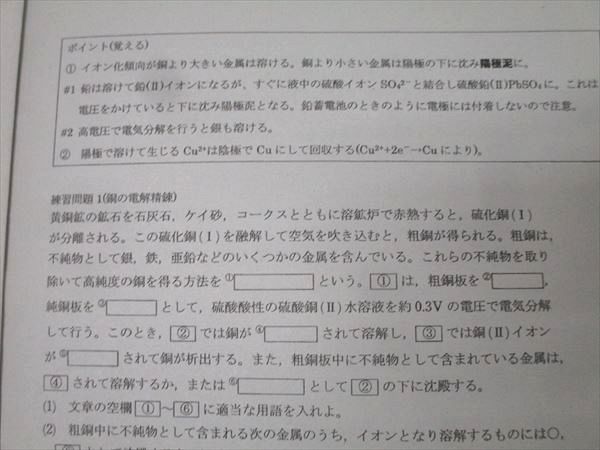 ポイント(覚える)
① イオン化傾向が銅より大きい金属は溶ける。銅より小さい金属は陽極の下に沈み陽極泥に。
#1 鉛は溶けて鉛(Ⅱ)イオンになるが、すぐに液中の硫酸イオン SO₄²⁻と結合し硫酸鉛(Ⅱ)PbSO₄に。これは
電圧をかけていると下に沈み陽極泥となる。鉛蓄電池のときのように電極には付着しないので注意。
#2 高電圧で電気分解を行うと銀も溶ける。
② 陽極で溶けて生じる Cu²⁺は陰極で Cu にして回収する(Cu²⁺+2e⁻→Cu により)。
練習問題 1(銅の電解精錬)
黄銅鉱の鉱石を石灰石，ケイ砂，コークスとともに溶鉱炉で赤熱すると，硫化銅(Ⅰ)
が分離される。この硫化銅(Ⅰ)を融解して空気を吹き込むと，粗銅が得られる。粗銅は，
不純物として銀，鉄，亜鉛などのいくつかの金属を含んでいる。これらの不純物を取り
除いて高純度の銅を得る方法を ① という。① は，粗銅板を ② ，
純銅板を ③ として，硫酸酸性の硫酸銅(Ⅱ)水溶液を約 0.3V の電圧で電気分解
して行う。このとき，② では銅が ④ されて溶解し，③ では銅(Ⅱ)イオン
が ⑤ されて銅が析出する。また，粗銅板中に不純物として含まれている金属は，
④ されて溶解するか，または ⑥ として ② の下に沈殿する。
(1) 文章の空欄 ① ～ ⑥ に適当な用語を入れよ。
(2) 粗銅中に不純物として含まれる次の金属のうち，イオンとなり溶解するものには○，